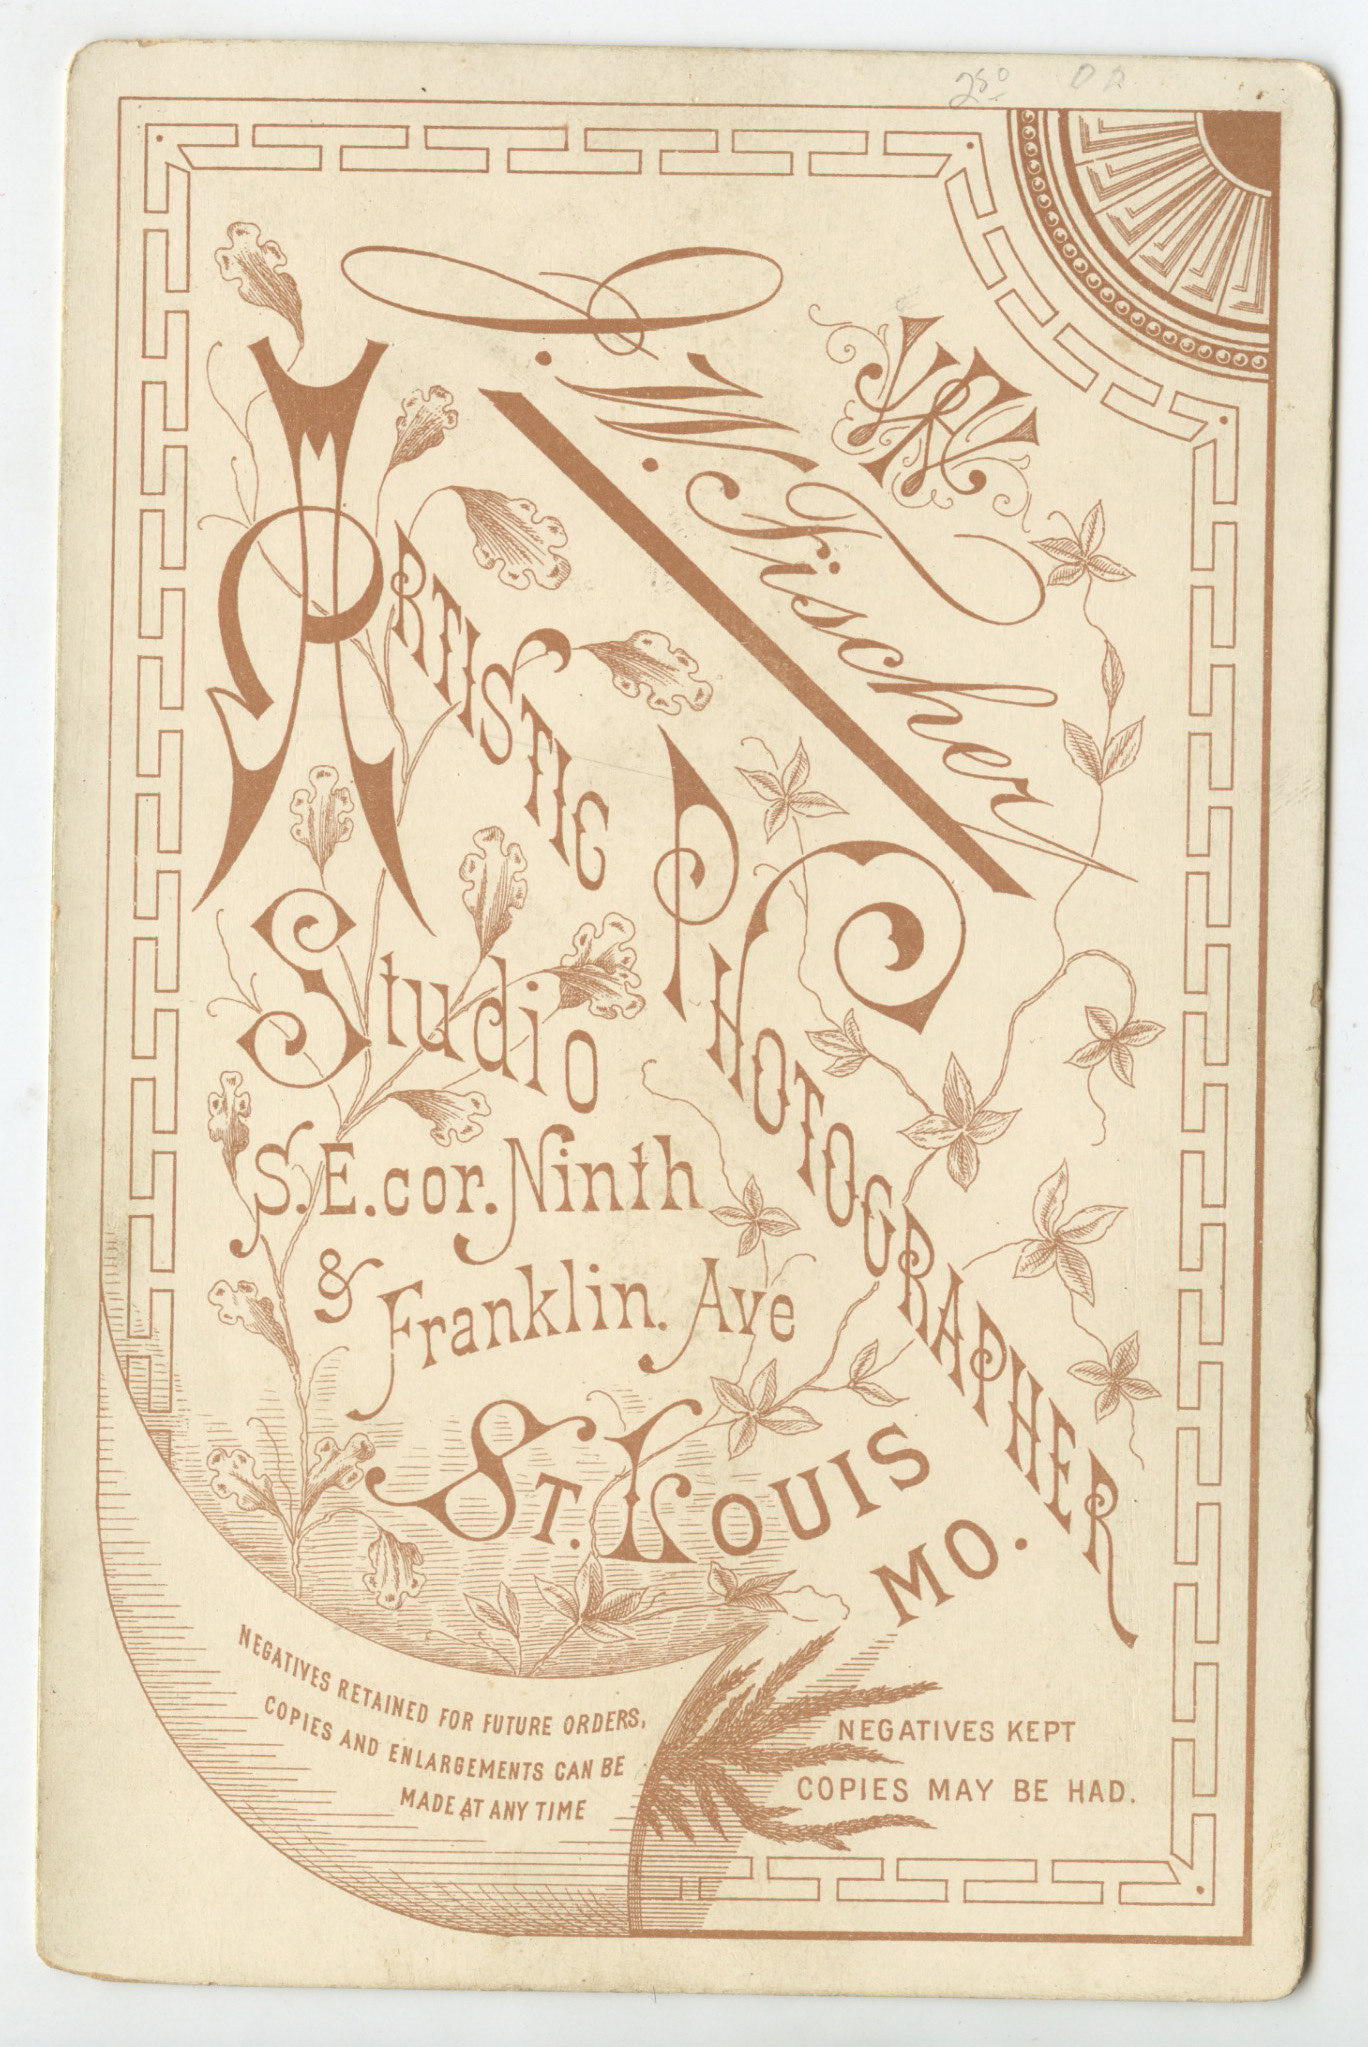 W. Fischer
ARTISTIC PHOTOGRAPHER
Studio
S.E. cor. Ninth
& Franklin. Ave
ST. LOUIS
MO.
NEGATIVES RETAINED FOR FUTURE ORDERS,
COPIES AND ENLARGEMENTS CAN BE
MADE AT ANY TIME
NEGATIVES KEPT
COPIES MAY BE HAD.